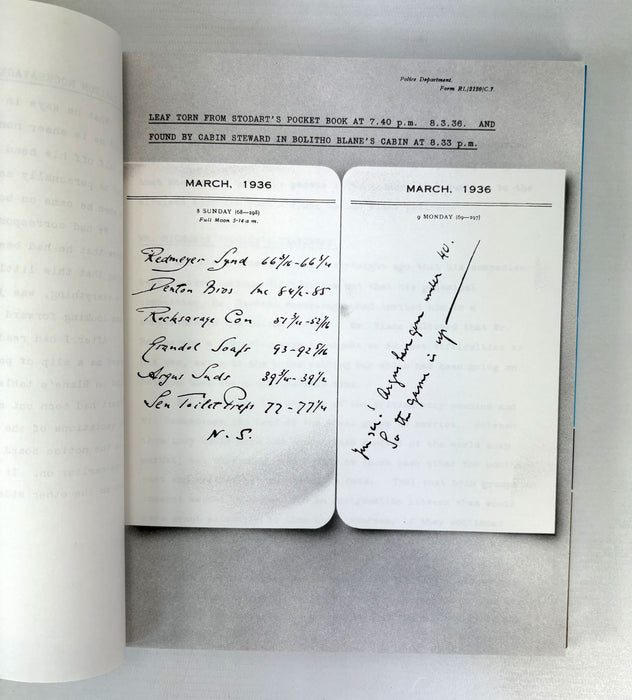 Police Department.
Form R1./2220/C.7.
LEAF TORN FROM STODART'S POCKET BOOK AT 7.40 p.m. 8.3.36. AND
FOUND BY CABIN STEWARD IN BOLITHO BLANE'S CABIN AT 8.33 p.m.
MARCH, 1936
8 SUNDAY (68—298)
Full Moon 5-14 a.m.
Redmeyer Synd 66 5/16 - 66 3/4
Denton Bros Inc 84 1/2 - 85
Rocksavage Con 51 3/4 - 52 1/16
Grandol Soaps 93 - 92 5/16
Argus Suds 39 3/4 - 39 1/2
Sen Toilet Preps 77 - 77 1/4
N. S.
MARCH, 1936
9 MONDAY (69—297)
You see! Argus have gone under 40.
So the game is up